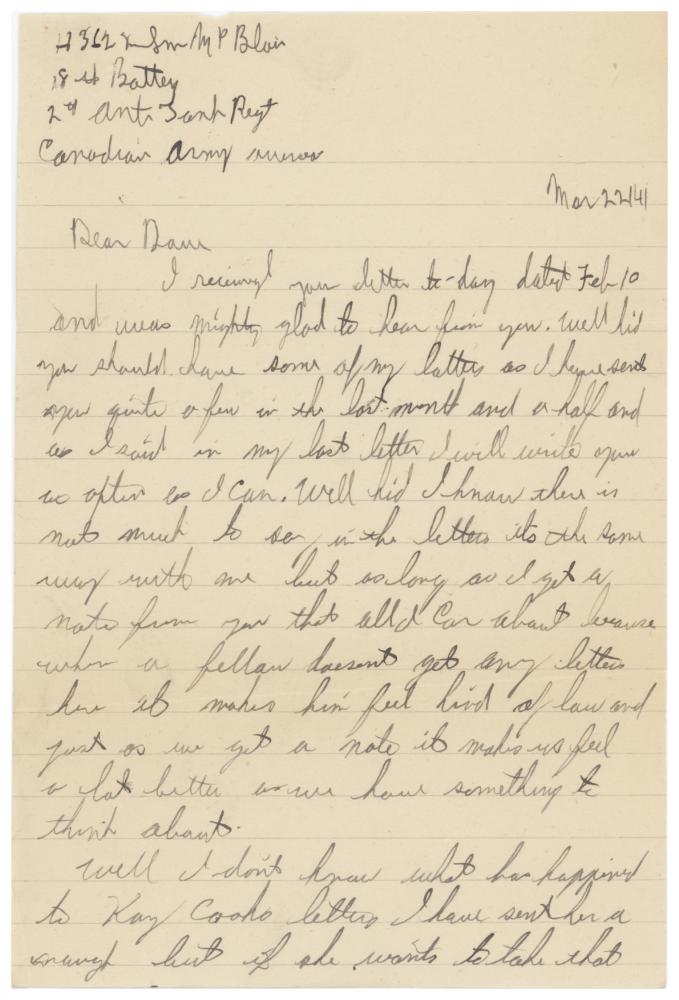 H3622 Gnr M P Blair
18th Battery
2nd Anti Tank Regt
Canadian Army overseas
Mar 22/41
Dear
I received your letter to-day dated Feb 10
and was mighty glad to hear from you. Well kid
you should have some of my letters as I have sent
you quite a few in the last month and a half and
as I said in my last letter I will write you
as often as I can. Well kid I know there is
not much to say in the letters its the same
way with me but as long as I get a
note from you that all I car about because
when a fellow doesent get any letters
here it makes him feel kind of low and
just as we get a note it makes us feel
a lot better as we have something to
think about.
Well I don't know what has happined
to Kay Cooks letters I have sent her a
enough but if she wants to take that